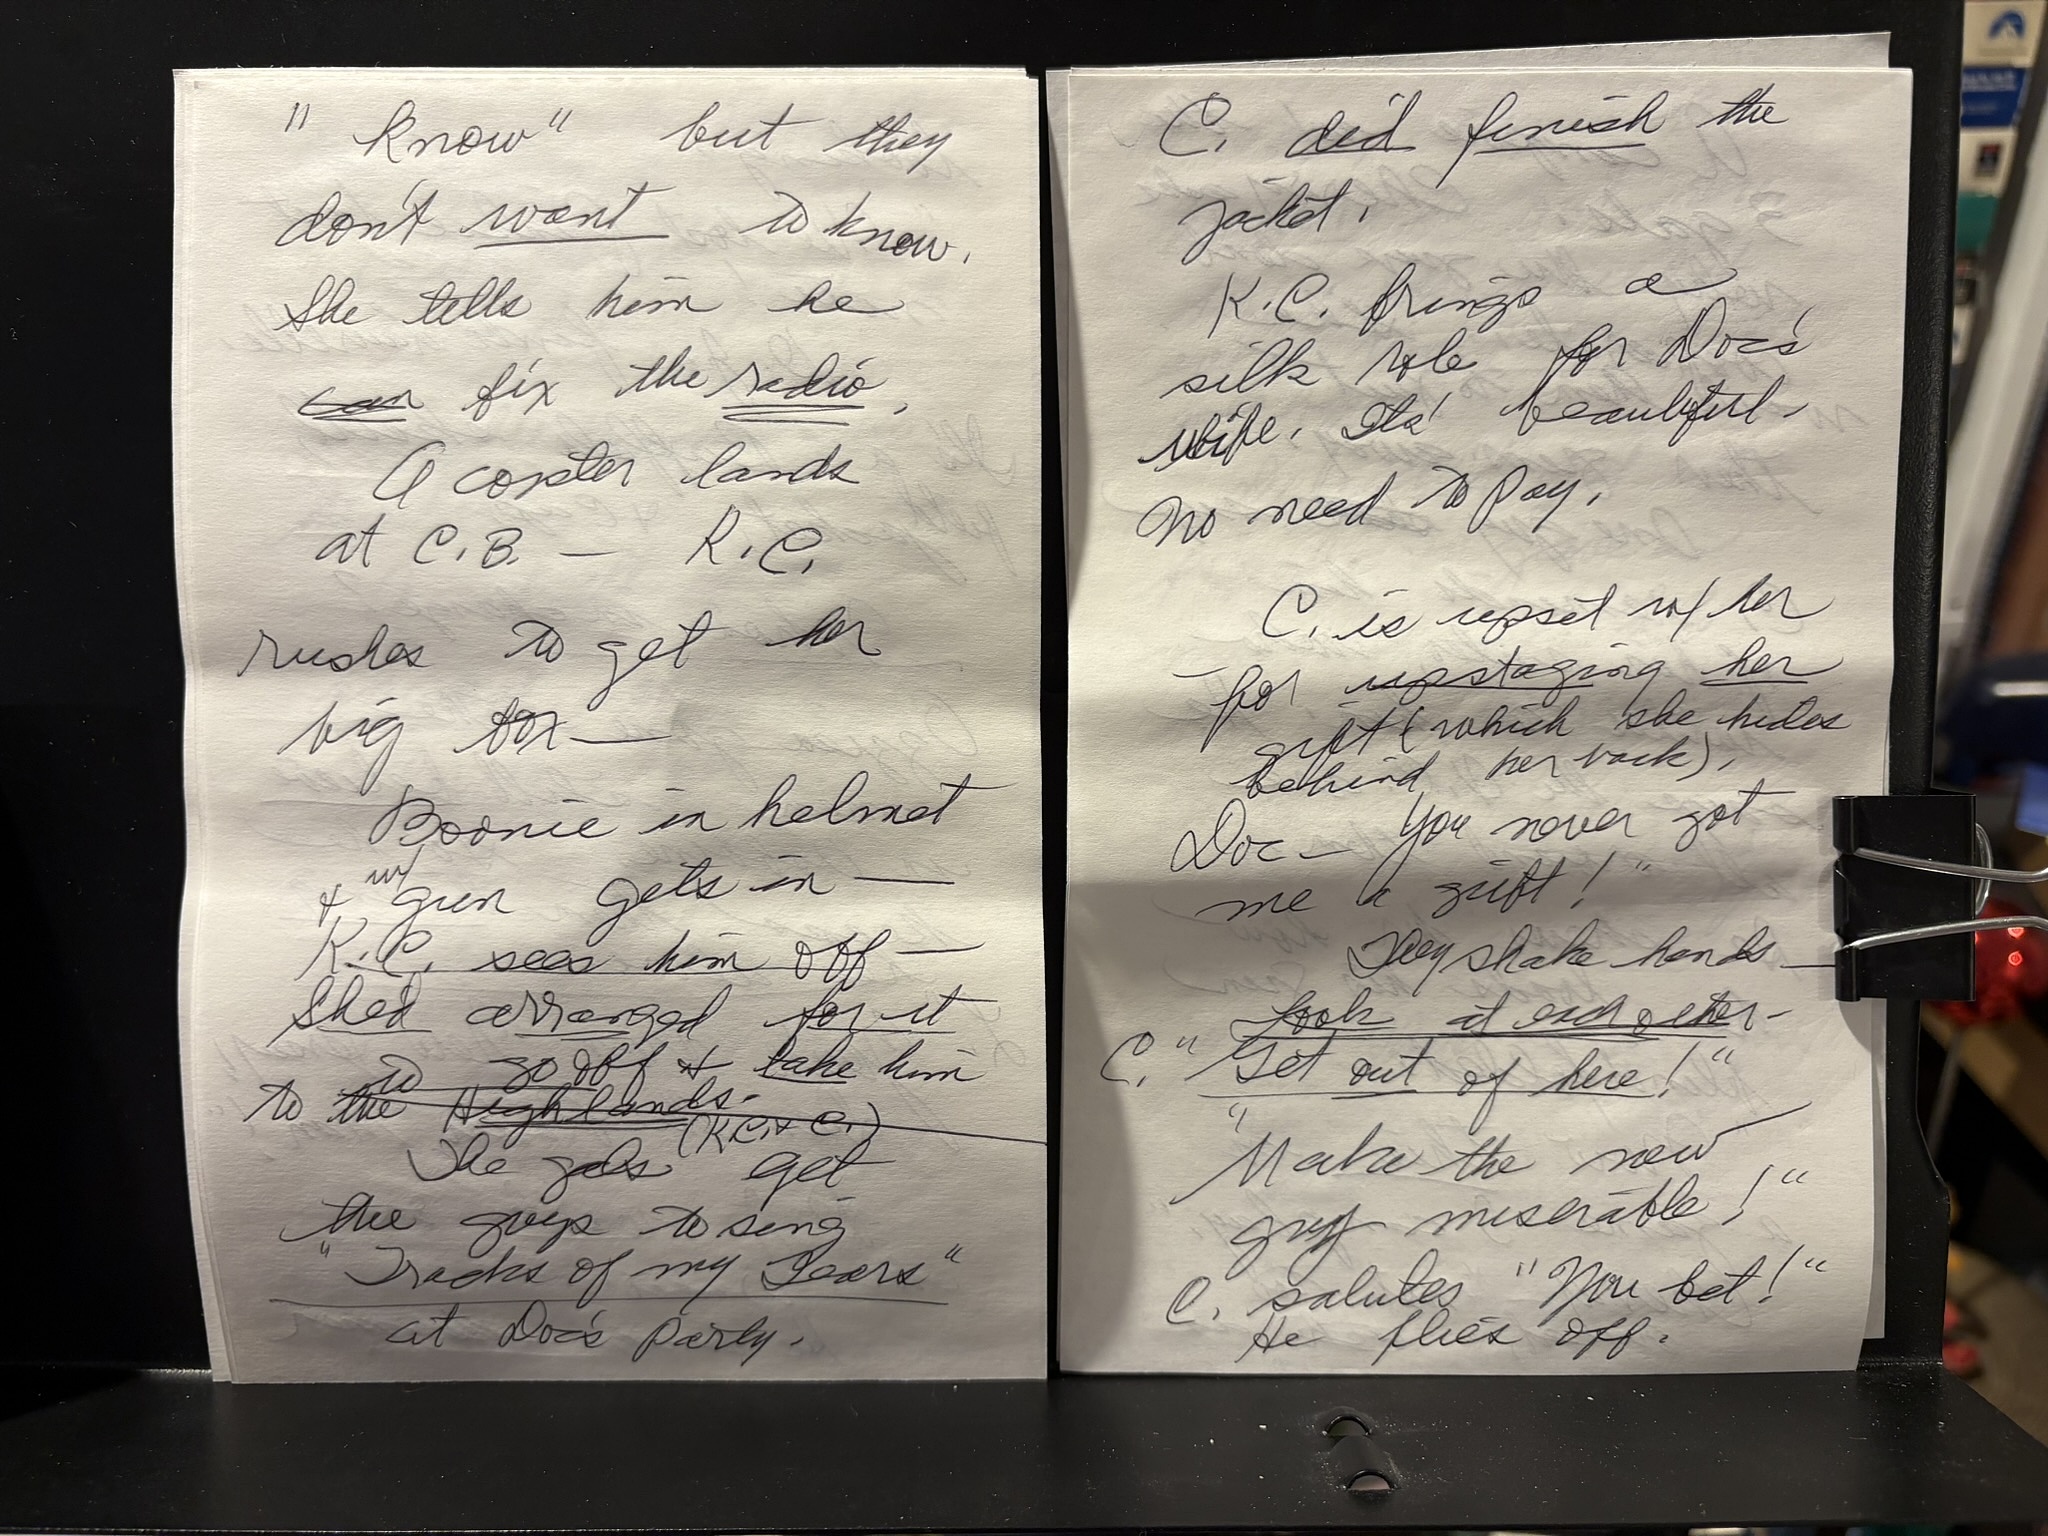 "Know" but they
don't want to know.
She tells him he
can fix the radio.
A copter lands
at C.B. — K.C.
rushes to get her
big box —
Boonie in helmet
& w/ gun gets in —
K.C. sees him off —
She'd arranged for it
to go off & take him
to the Highlands.
(K.C. & C.)
The gals get
the guys to sing
"Tracks of my Tears"
at Doc's party.
C. did finish the
jacket.
K.C. brings a
silk robe for Doc's
wife. Its' beautiful.
No need to pay.
C. is upset w/ her
for upstaging her
gift (which she hides
behind her back).
Doc — You never got
me a gift!"
They shake hands —
Look at each other -
C. "Get out of here!"
"Make the new
guy miserable!"
C. salutes "You bet!"
He flies off.